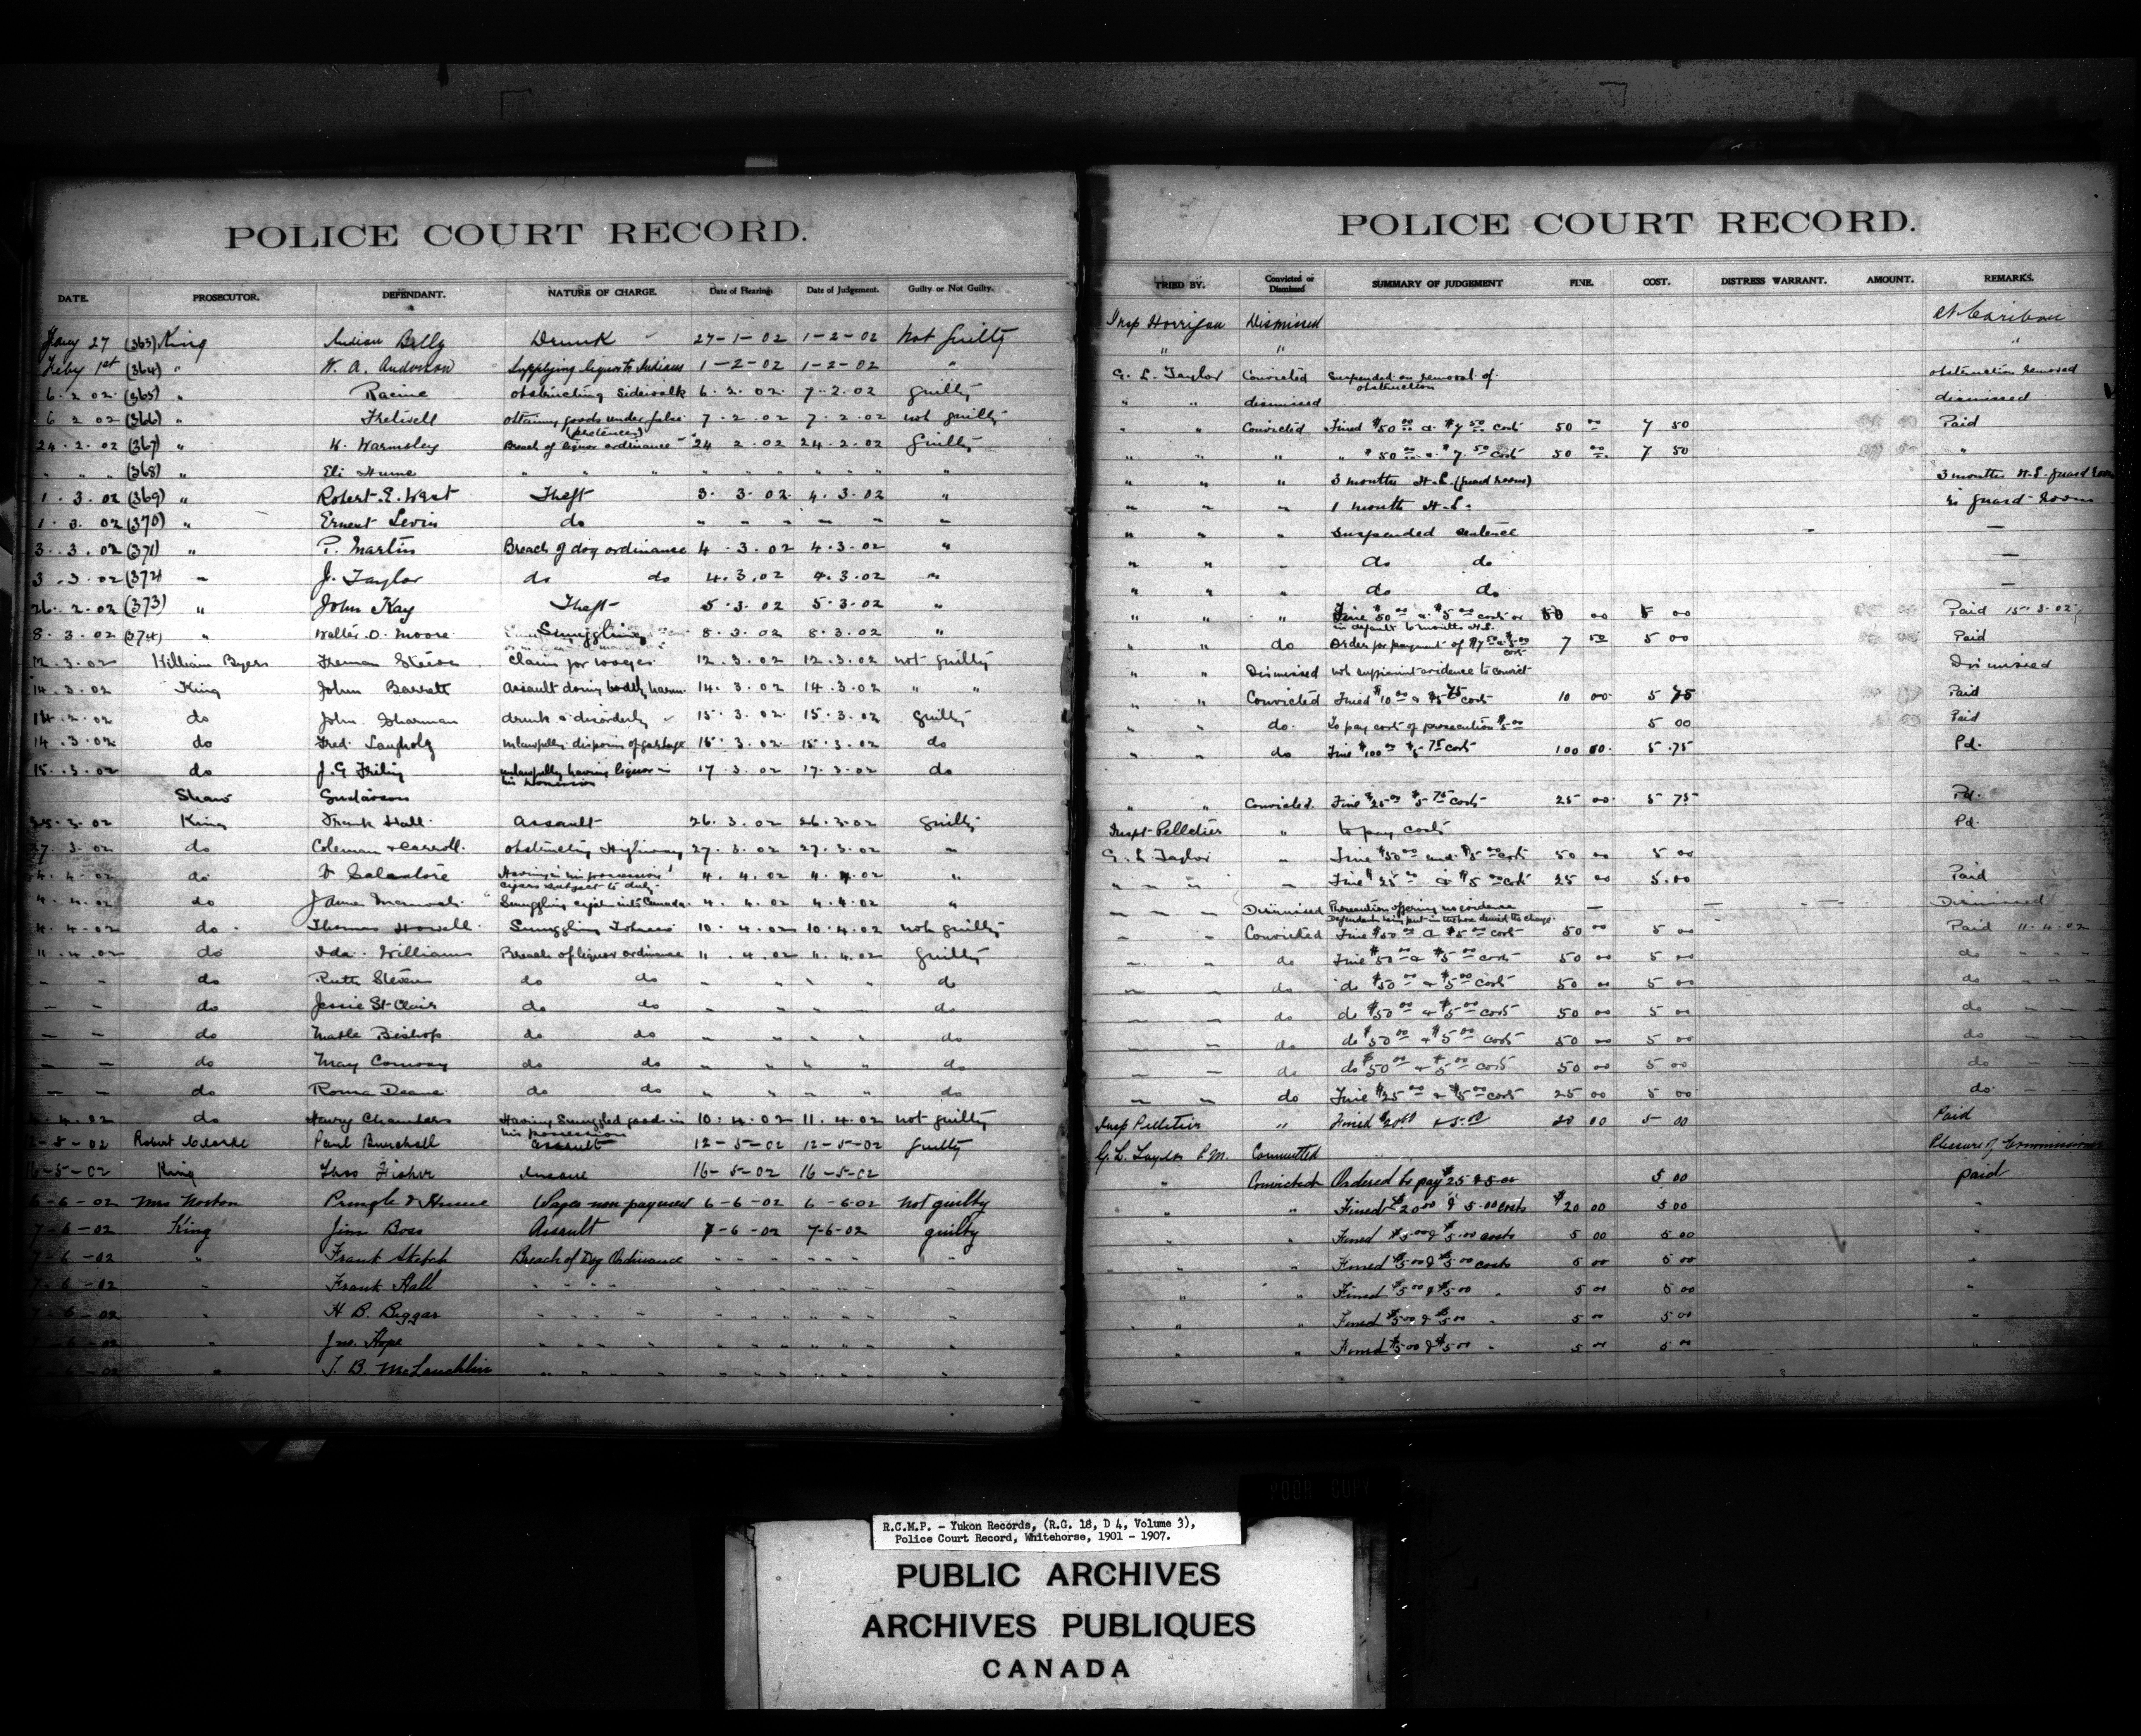 POLICE COURT RECORD.
DATE. PROSECUTOR. DEFENDANT. NATURE OF CHARGE. Date of Hearing. Date of Judgement. Guilty or Not Guilty.
Jany 27 (363) King Indian Billy Drunk 27-1-02 1-2-02 Not Guilty
Feby 1st (364) " W. A. Anderson Supplying liquor to Indians 1-2-02 1-2-02 "
6.2.02 (365) " Racine obstructing Sidewalk 6.2.02 7.2.02 guilty
6 2 02 (366) " Fretwell obtaining goods under false (pretences) 7.2.02 7.2.02 not guilty
24.2.02 (367) " W. Warmsley Breach of liquor ordinance 24 2.02 24.2.02 Guilty
" " " (368) " Eli Hume " " " " " " " " " "
1.3.02 (369) " Robert.E.West Theft 3.3.02 4.3.02 "
1.3.02 (370) " Ernest Levin do " " " " " " "
3.3.02 (371) " P. Martin Breach of dog ordinance 4.3.02 4.3.02 "
3.3.02 (372) " J. Taylor do do 4.3.02 4.3.02 "
26.2.02 (373) " John Kay Theft 5.3.02 5.3.02 "
8.3.02 (374) " Walter.O.Moore Smuggling 8.3.02 8.3.02 "
12.3.02 William Byers Freman claim for wages 12.3.02 12.3.02 not guilty
14.3.02 King John Barrett Assault doing bodily harm 14.3.02 14.3.02 " "
14.2.02 do John Sharman drunk & disorderly 15.3.02 15.3.02 guilty
14.3.02 do Fred. Langholz unlawfully disposing of garbage 15.3.02 15.3.02 do
15.3.02 do J.G unlawfully having liquor in his 17.3.02 17.3.02 do
Shaw Gustavson
25.3.02 King Frank Hall Assault 26.3.02 26.3.02 guilty
27.3.02 do Coleman & Carroll obstructing Highway 27.3.02 27.3.02 "
4.4.02 do Having in his possession cigars subject to duty 4.4.02 4.4.02 "
4.4.02 do James Smuggling into Canada 4.4.02 4.4.02 "
4.4.02 do Thomas Howell Smuggling Tobacco 10.4.02 10.4.02 not guilty
11.4.02 do Ida Williams Breach of liquor ordinance 11.4.02 11.4.02 guilty
" " do Ruth Stevens do do " " " " do
" " do Jessie St Clair do do " " " " do
" " do Mable Bishop do do " " " " do
" " do May Conway do do " " " " do
" " do Roma Deane do do " " " " do
4.4.02 do Harry Chambers Having Smuggled goods in his possession 10.4.02 11.4.02 not guilty
-5-02 Robert Clarke Paul Burchell Assault 12-5-02 12-5-02 Guilty
16-5-02 King Thos Fisher Insane 16-5-02 16-5-02
6-6-02 Mrs Norton Pringle & Hume Wages non payment 6-6-02 6-6-02 Not guilty
7-6-02 King Jim Boss Assault 7-6-02 7-6-02 guilty
7-6-02 " Frank Breach of Dog Ordinance " " " " " " "
7-6-02 " Frank Hall " " " " " " " " " "
7-6-02 " H B. Biggar " " " " " " " " " "
7-6-02 " Jno. Hope " " " " " " " " " "
-6-02 " T. B. McLauchlin " " " " " " " " " "
POLICE COURT RECORD.
TRIED BY. Convicted or Dismissed SUMMARY OF JUDGEMENT FINE. COST. DISTRESS WARRANT. AMOUNT. REMARKS.
Insp Horrigan Dismissed At Caribou
" " "
G. L. Taylor Convicted Suspended on removal of obstruction obstruction removed
" " dismissed dismissed
" " Convicted Fined $50 00 & $7 50 costs 50 00 7 50 Paid
" " " " $50 00 & $7 50 costs 50 00 7 50 "
" " " 3 months H.L. (guard room) 3 months H.L. guard room
" " " 1 month H.L. in guard room
" " " Suspended sentence —
" " " do do —
" " " do do —
" " " Fine $50 00 & $5 00 costs or in default 6 months H.L. 50 00 5 00 Paid 15.3.02
" " do Order for payment of $7 50 & 5.00 cost 7 50 5 00 Paid
" " Dismissed not sufficient evidence to convict Dismissed
" " Convicted Fined $10 00 & $5 75 costs 10 00 5 75 Paid
" " do. To pay cost of prosecution $5.00 5 00 Paid
" " do Fine $100 00 $5 75 costs 100 00 5.75 Pd.
" " Convicted. Fine $25 00 $5 75 costs 25 00 5 75 Pd.
Inspt Pelletier " to pay costs Pd.
G. L. Taylor " Fine $50 00 and $5 00 costs 50 00 5 00
" " " " Fine $25 00 & $5 00 costs 25 00 5.00 Paid
" " " Dismissed Prosecution offering no evidence Defendant being put in the box denied the charge — — — Dismissed
" " Convicted Fine $50 00 & $5 00 costs 50 00 5 00 Paid 11.4.02
" " do Fine $50 00 & $5 00 costs 50 00 5 00 do " " "
" " do do $50 00 & $5 00 costs 50 00 5 00 do " " "
" " do do $50 00 & $5 00 costs 50 00 5 00 do " " "
" " do do $50 00 & $5 00 costs 50 00 5 00 do " " "
" " do do $50 00 & $5 00 costs 50 00 5 00 do " "
" " do Fine $25 00 & $5 00 costs 25 00 5 00 do "
Insp Pelletier " Fined $20.00 & 5.00 20 00 5 00 Paid
G. L. Taylor P.M. Committed Pleasure of Commissioner
" Convicted Ordered to pay $25 & 5.00 5 00 paid
" " Fined $20 00 & 5.00 costs $20 00 5 00 "
" " Fined $5.00 & $5.00 costs 5 00 5 00 "
" " " Fined $5.00 & $5.00 costs 5 00 5 00 "
" " Fined $5.00 & $5.00 " 5 00 5 00 "
" " " Fined $5.00 & $5.00 " 5 00 5 00 "
" " Fined $5.00 & $5.00 " 5 00 5 00 "
POOR COPY
R.C.M.P. - Yukon Records, (R.G. 18, D 4, Volume 3),
Police Court Record, Whitehorse, 1901 - 1907.
PUBLIC ARCHIVES
ARCHIVES PUBLIQUES
CANADA